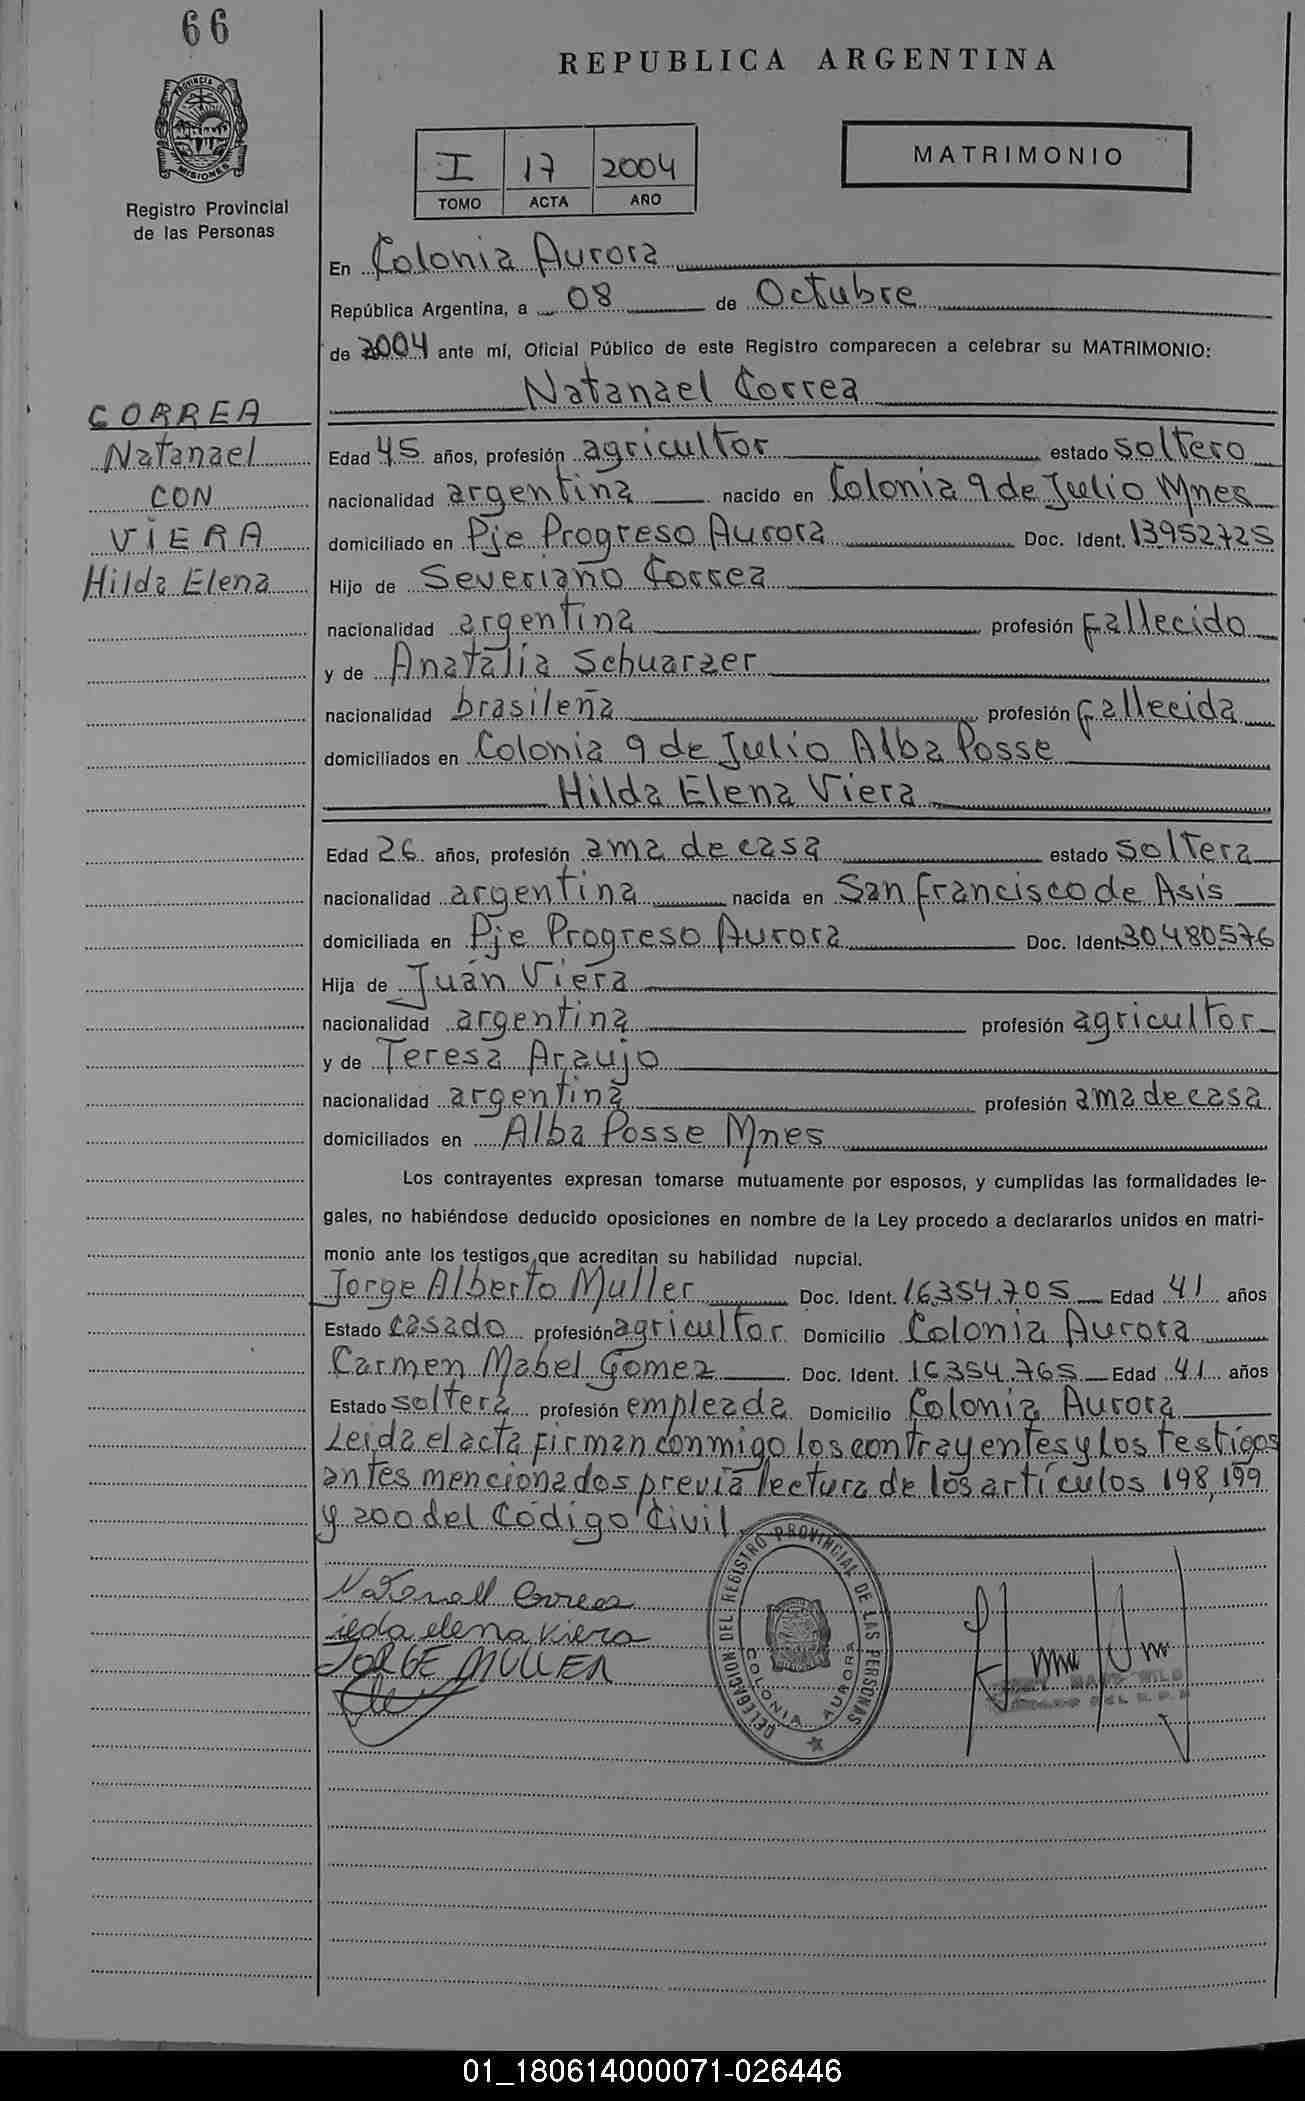 66
REPUBLICA ARGENTINA
PROVINCIA DE MISIONES
Registro Provincial
de las Personas
I 17 2004
TOMO ACTA AÑO
MATRIMONIO
En Colonia Aurora
República Argentina, a 08 de Octubre
de 2004 ante mí, Oficial Público de este Registro comparecen a celebrar su MATRIMONIO:
Natanael Correa
CORREA
Natanael
CON
VIERA
Hilda Elena
Edad 45 años, profesión agricultor estado soltero
nacionalidad argentina nacido en Colonia 9 de Julio Mnes
domiciliado en Pje Progreso Aurora Doc. Ident. 13.952.725
Hijo de Severiano Correa
nacionalidad argentina profesión fallecido
y de Anatalia Schuarzer
nacionalidad brasileña profesión fallecida
domiciliados en Colonia 9 de Julio Alba Posse
Hilda Elena Viera
Edad 26 años, profesión ama de casa estado soltera
nacionalidad argentina nacida en San Francisco de Asis
domiciliada en Pje Progreso Aurora Doc. Ident 30.480.576
Hija de Juán Viera
nacionalidad argentina profesión agricultor
y de Teresa Araujo
nacionalidad argentina profesión ama de casa
domiciliados en Alba Posse Mnes
Los contrayentes expresan tomarse mutuamente por esposos, y cumplidas las formalidades le-
gales, no habiéndose deducido oposiciones en nombre de la Ley procedo a declararlos unidos en matri-
monio ante los testigos que acreditan su habilidad nupcial.
Jorge Alberto Muller Doc. Ident. 16.354.705 Edad 41 años
Estado casado profesión agricultor Domicilio Colonia Aurora
Carmen Mabel Gomez Doc. Ident. 16.354.765 Edad 41 años
Estado soltera profesión empleada Domicilio Colonia Aurora
Leida el acta firman conmigo los contrayentes y los testigos
antes mencionados previa lectura de los artículos 198, 199
y 200 del Código Civil
Natanaell Correa
ilda elena viera
JORGE MULLER
DELEGACION DEL REGISTRO PROVINCIAL DE LAS PERSONAS
COLONIA AURORA
01_180614000071-026446